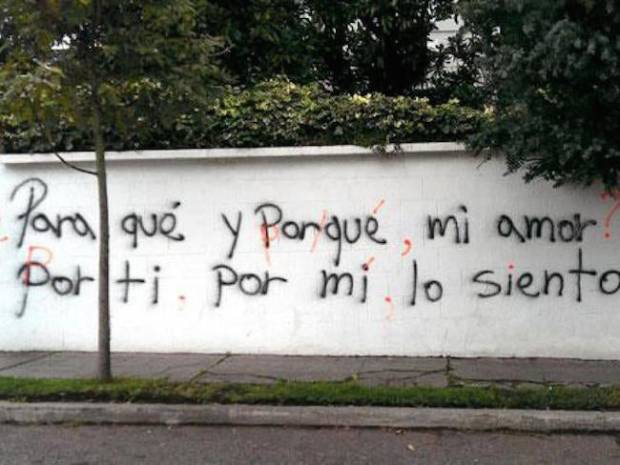 ¿Para qué y Por/qué, mi amor?
Por ti. por mí, lo siento